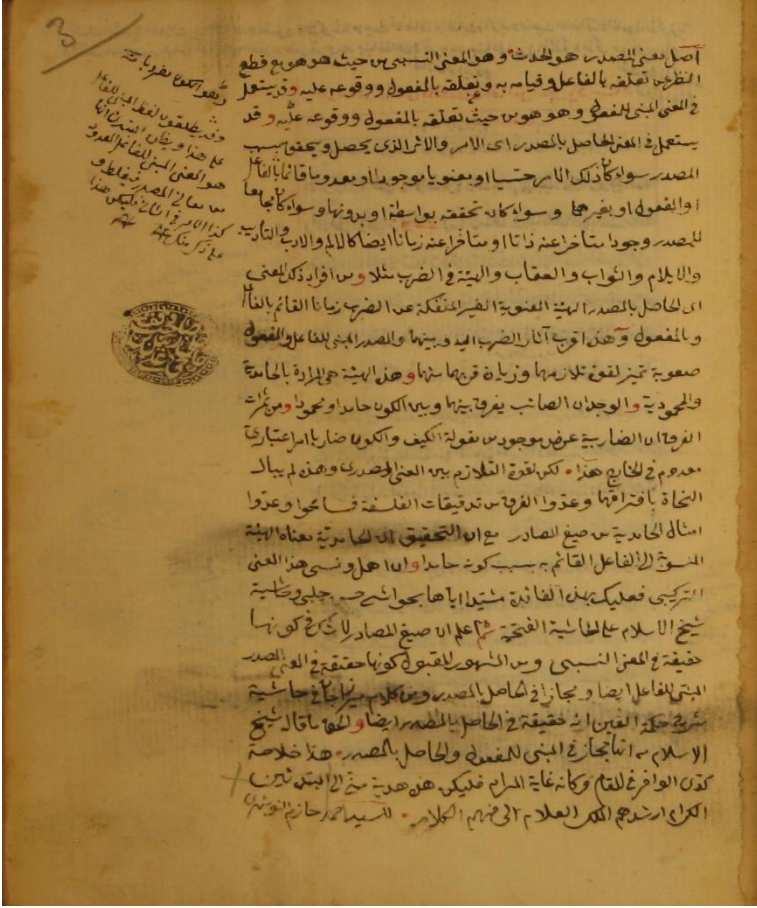 3
اصل معنى المصدر هو الحدث وهو المعنى النسبى من حيث هو هو مع قطع
النظر عن تعلقه بالفاعل وقيامه به وتعلقه بالمفعول ووقوعه عليه وقد يستعمل
فى المعنى المبنى للمفعول وهو هو من حيث تعلقه بالمفعول ووقوعه عليه وقد
يستعمل فى المعنى الحاصل بالمصدر اى الامر والاثر الذى يحصل ويتحقق بسبب
المصدر سواء كان ذلك الامر حسيا او معنويا موجودا او معدوما قائما بالفاعل
او المفعول او بغيرهما وسواء كان تحققه بواسطة او بدونها وسواء كان مجامعا
للمصدر وجودا متاخرا عنه ذاتا او متاخرا عنه زمانا ايضا كالالم والادب والتاديب
والايلام والثواب والعقاب والهيئة فى الضرب مثلا ومن افراد ذلك المعنى
اى الحاصل بالمصدر الهيئة المعنوية الغير المنفكة عن الضرب زمانا القائم بالفاعل
وبالمفعول وهذا اقرب آثار الضرب اليه وبينها والمصدر المبنى للفاعل والمفعول
صعوبة تميز لقوة تلازمها وزيادة قربها منها وهذه الهيئة هى المرادة بالحامدية
والمحمودية والوجدان الصائب يفرق بينها وبين الكون حامدا ومحمودا ومن ثمرات
الفرق ان الضاربية عرض موجود من مقولة الكيف والكون ضاربا امر اعتبارى
معدوم فى الخارج هذا لكن لقوة التلازم بين المعنى المصدرى وهذه لم يبال
النحاة بافتراقها وعدوا الفرق من تدقيقات الفلسفة فسامحوا وعدوا
امثال الحامدية من صيغ المصادر مع ان التحقيق ان الحامدية معناه الهيئة
المنسوبة الى الفاعل القائم به بسبب كونه حامدا وان اهل ونسى هذا المعنى
التركيبى فعليك بهذه الفائدة مشيدا اياها بحواشى حسن چلبى وحاشية
شيخ الاسلام على الحاشية الفتحية ثم اعلم ان صيغ المصادر لا شك فى كونها
حقيقة فى المعنى النسبى ومن المشهور المقبول كونها حقيقة فى المعنى المصدر
المبنى للفاعل ايضا ومجازا فى الحاصل بالمصدر ومن كلام ميرزاجان فى حاشية
شرح حكمة العين انه حقيقة فى الحاصل بالمصدر ايضا والحق ما قال شيخ
الاسلام من انها مجاز فى المبنى للمفعول والحاصل بالمصدر هذا خلاصة
الوافر فى المقام وكانه غاية المرام فليكن هذه هدية منى الى المبتدئين
الكرام ارشدهم الملك العلام الى فهم الكلام للسيد احمد حازم
وهو الكون
وقد يطلقون لفظ المبنى للفاعل
على هذا ويظن المصدر انها
هو المعنى المبنى للفاعل المعدود
من معانى المصدر فيغلط و
كذا الامر فى الثانى فليكن هذا
على ذكر منك